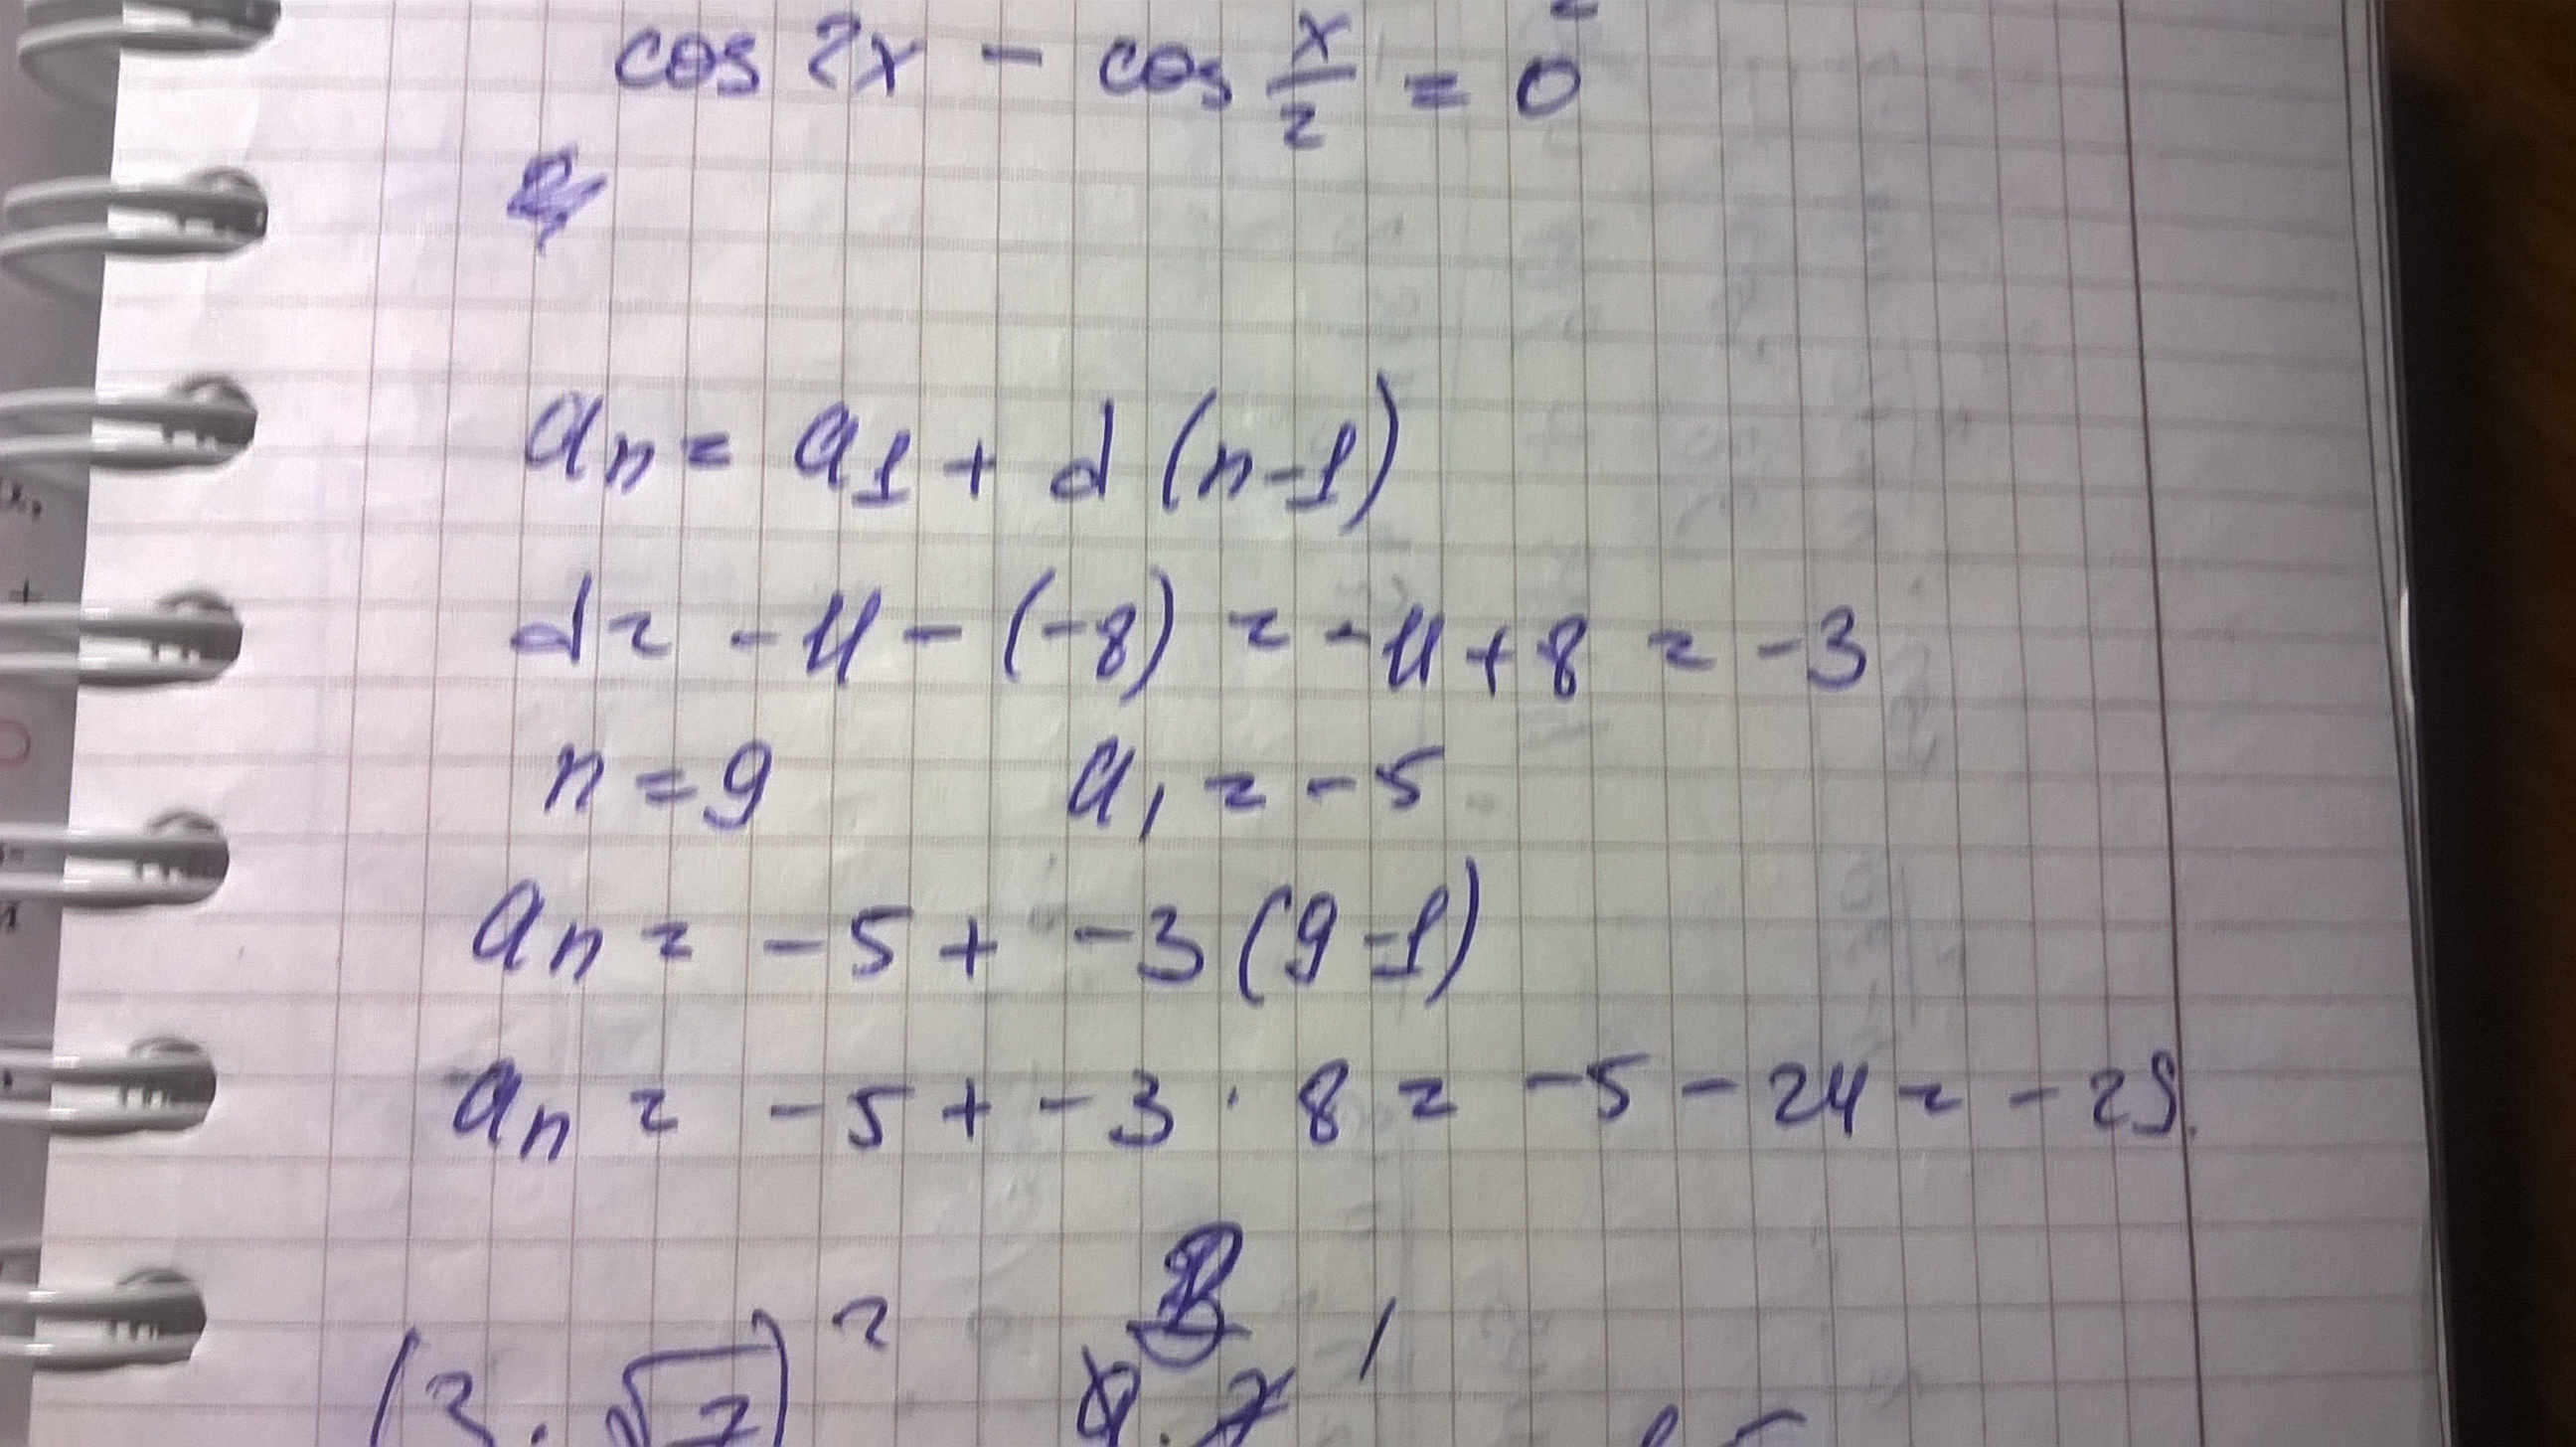 cos 2x - cos x/2 = 0
an = a1 + d (n-1)
d = -11 - (-8) = -11 + 8 = -3
n = 9 a1 = -5
an = -5 + -3 (9-1)
an = -5 + -3 · 8 = -5 - 24 = -29.
(3 · √7)²